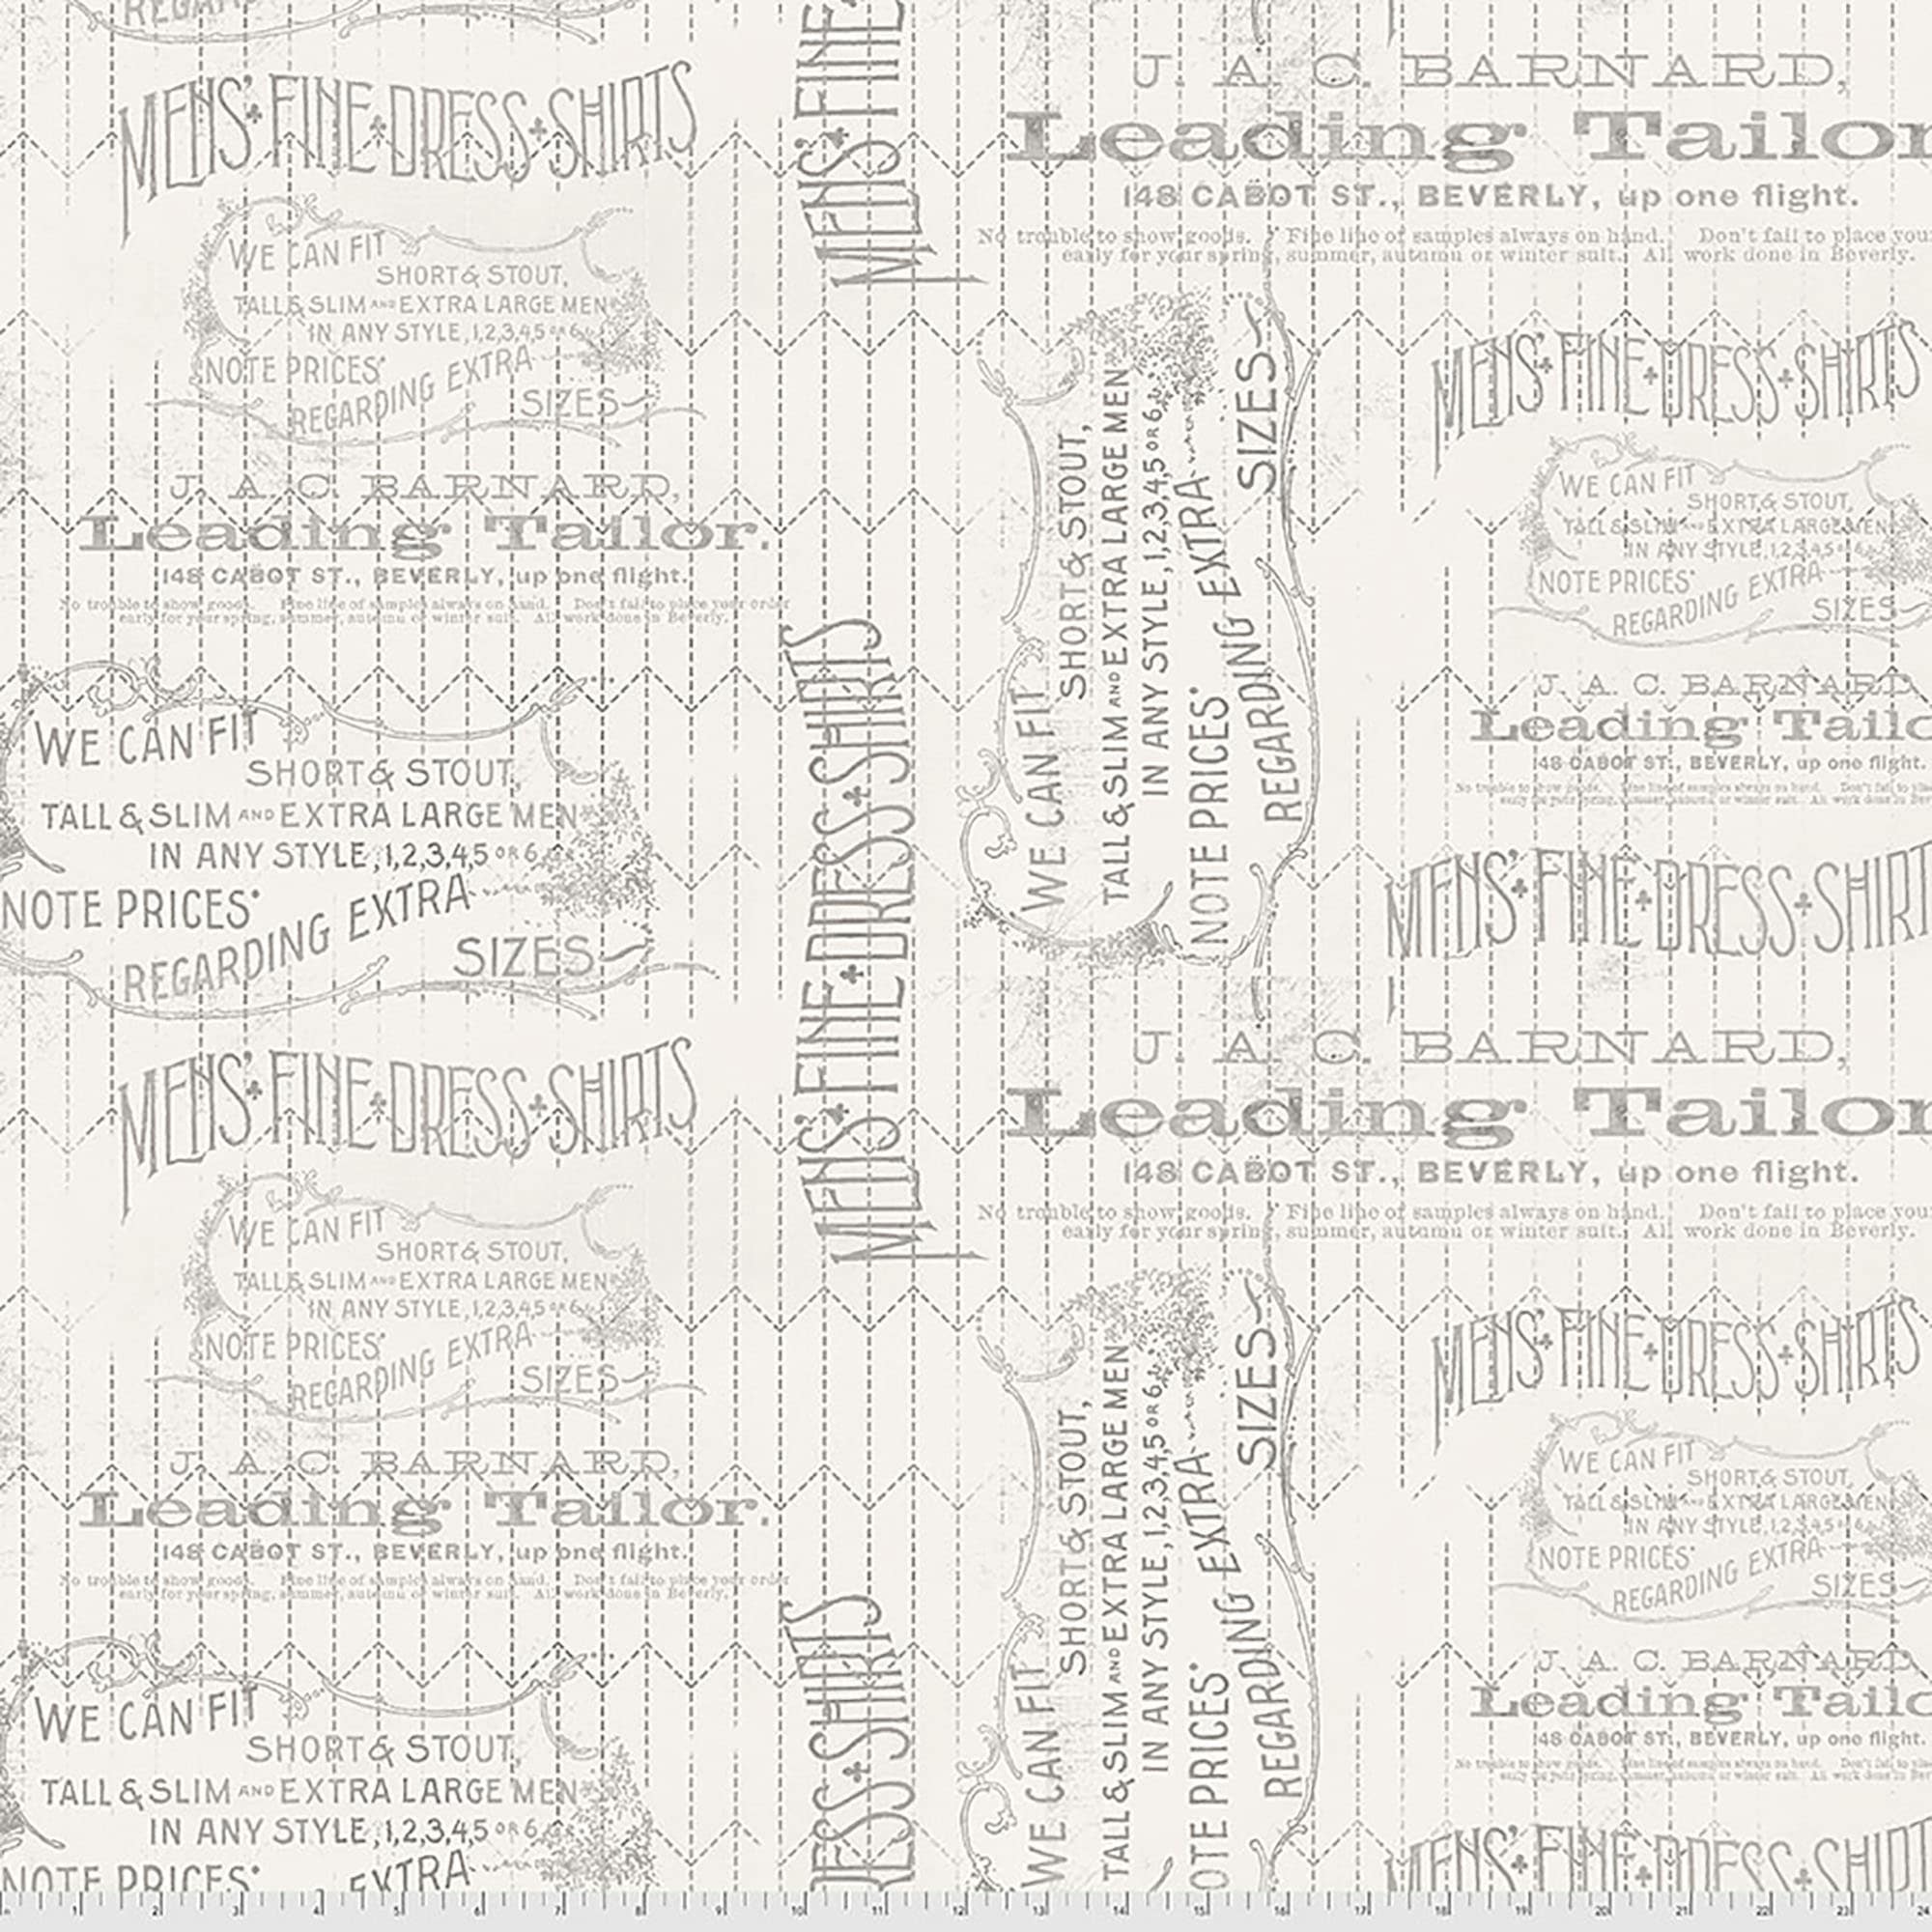 REGARDING
MENS' FINE DRESS SHIRTS
WE CAN FIT
SHORT & STOUT,
TALL & SLIM AND EXTRA LARGE MEN
IN ANY STYLE, 1,2,3,4,5 OR 6
NOTE PRICES
REGARDING EXTRA
SIZES
J. A. C. BARNARD,
Leading Tailor.
148 CABOT ST., BEVERLY, up one flight.
No trouble to show goods. Fine line of samples always on hand. Don't fail to place your order
early for your spring, summer, autumn or winter suit. All work done in Beverly.
WE CAN FIT
SHORT & STOUT,
TALL & SLIM AND EXTRA LARGE MEN
IN ANY STYLE, 1,2,3,4,5 OR 6
NOTE PRICES
REGARDING EXTRA
SIZES
MENS' FINE DRESS SHIRTS
WE CAN FIT
SHORT & STOUT,
TALL & SLIM AND EXTRA LARGE MEN
IN ANY STYLE, 1,2,3,4,5 OR 6
NOTE PRICES
REGARDING EXTRA
SIZES
J. A. C. BARNARD,
Leading Tailor.
148 CABOT ST., BEVERLY, up one flight.
No trouble to show goods. Fine line of samples always on hand. Don't fail to place your order
early for your spring, summer, autumn or winter suit. All work done in Beverly.
WE CAN FIT
SHORT & STOUT,
TALL & SLIM AND EXTRA LARGE MEN
IN ANY STYLE, 1,2,3,4,5 OR 6
NOTE PRICES
EXTRA
MENS' FINE
MENS' FINE DRESS SHIRTS
SHIRTS
J. A. C. BARNARD,
Leading Tailor
148 CABOT ST., BEVERLY, up one flight.
No trouble to show goods. Fine line of samples always on hand. Don't fail to place you
early for your spring, summer, autumn or winter suit. All work done in Beverly.
WE CAN FIT
SHORT & STOUT,
TALL & SLIM AND EXTRA LARGE MEN
IN ANY STYLE, 1,2,3,4,5 OR 6
NOTE PRICES
REGARDING EXTRA
SIZES
J. A. C. BARNARD,
Leading Tailor
148 CABOT ST., BEVERLY, up one flight.
No trouble to show goods. Fine line of samples always on hand. Don't fail to place you
early for your spring, summer, autumn or winter suit. All work done in Beverly.
WE CAN FIT
SHORT & STOUT,
TALL & SLIM AND EXTRA LARGE MEN
IN ANY STYLE, 1,2,3,4,5 OR 6
OTE PRICES
REGARDING EXTRA
SIZES
MENS' FINE DRESS SHIRTS
WE CAN FIT
SHORT & STOUT,
TALL & SLIM AND EXTRA LARGE MEN
IN ANY STYLE, 1,2,3,4,5 OR 6
NOTE PRICES
REGARDING EXTRA
SIZES
J. A. C. BARNARD
Leading Tailo
148 CABOT ST., BEVERLY, up one flight.
MENS' FINE DRESS SHIRT
MENS' FINE DRESS SHIRTS
WE CAN FIT
SHORT & STOUT,
TALL & SLIM AND EXTRA LARGE MEN
IN ANY STYLE, 1,2,3,4,5 OR 6
NOTE PRICES
REGARDING EXTRA
SIZES
J. A. C. BARNARD
Leading Tailo
148 CABOT ST., BEVERLY, up one flight.
MENS' FINE DRESS SHIRT
1 2 3 4 5 6 7 8 9 10 11 12 13 14 15 16 17 18 19 20 21 22 23 24